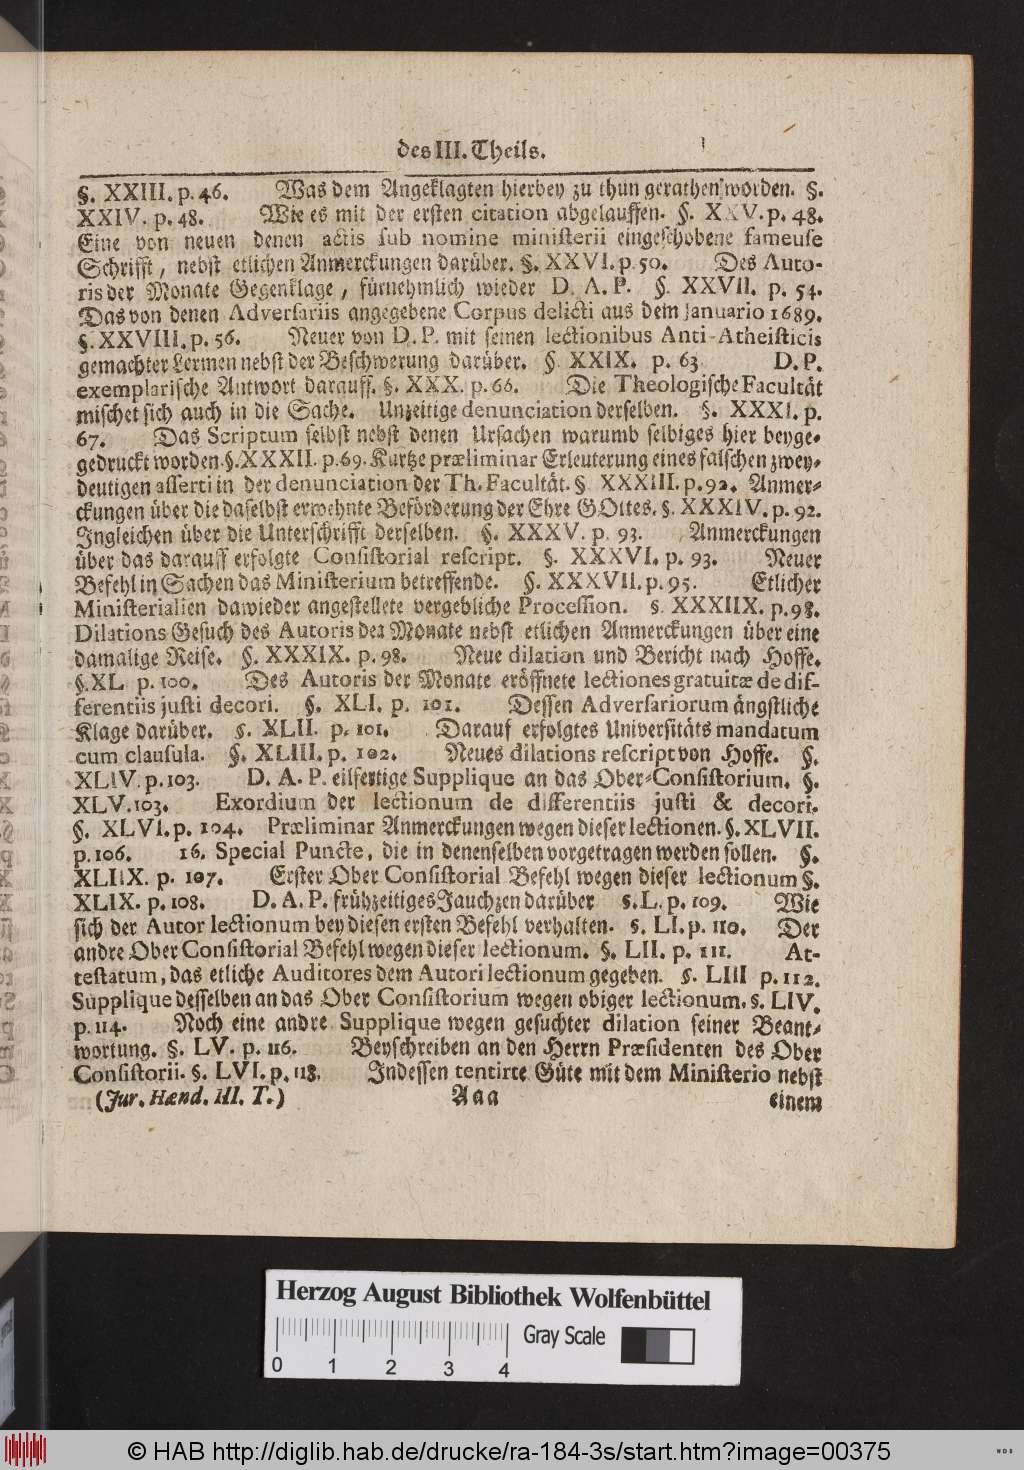 des III. Theils.
§. XXIII. p. 46. Was dem Angeklagten hierbey zu thun gerathen worden. §.
XXIV. p. 48. Wie es mit der ersten citation abgelauffen. §. XXV. p. 48.
Eine von neuen denen actis sub nomine ministerii eingeschobene fameuse
Schrifft, nebst etlichen Anmerckungen darüber. §. XXVI. p. 50. Des Auto-
ris der Monate Gegenklage, fürnehmlich wieder D. A. P. §. XXVII. p. 54.
Das von denen Adversariis angegebene Corpus delicti aus dem Januario 1689.
§. XXVIII. p. 56. Neuer von D. P. mit seinen lectionibus Anti-Atheisticis
gemachter Lermen nebst der Beschwerung darüber. §. XXIX. p. 63 D. P.
exemplarische Antwort darauff. §. XXX. p. 66. Die Theologische Facultät
mischet sich auch in die Sache. Unzeitige denunciation derselben. §. XXXI. p.
67. Das Scriptum selbst nebst denen Ursachen warumb selbiges hier beyge-
gedruckt worden. §. XXXII. p. 69. Kurtze præliminar Erleuterung eines falschen zwey-
deutigen asserti in der denunciation der Th. Facultät. § XXXIII. p. 92. Anmer-
ckungen über die daselbst erwehnte Beförderung der Ehre GOttes. §. XXXIV. p. 92.
Ingleichen über die Unterschrifft derselben. §. XXXV. p. 93. Anmerckungen
über das darauff erfolgte Consistorial rescript. §. XXXVI. p. 93. Neuer
Befehl in Sachen das Ministerium betreffende. §. XXXVII. p. 95. Etlicher
Ministerialien dawieder angestellete vergebliche Procession. §. XXXIIX. p. 98.
Dilations Gesuch des Autoris der Monate nebst etlichen Anmerckungen über eine
damalige Reise. §. XXXIX. p. 98. Neue dilation und Bericht nach Hoffe.
§. XL p. 100. Des Autoris der Monate eröffnete lectiones gratuitæ de dif-
ferentiis justi decori. §. XLI. p. 101. Dessen Adversariorum ängstliche
Klage darüber. §. XLII. p. 101. Darauf erfolgtes Universitäts mandatum
cum clausula. §. XLIII. p. 102. Neues dilations rescript von Hoffe. §.
XLIV. p. 103. D. A. P. eilfertige Supplique an das Ober-Consistorium. §.
XLV. 103. Exordium der lectionum de differentiis justi & decori.
§. XLVI. p. 104. Præliminar Anmerckungen wegen dieser lectionen. §. XLVII.
p. 106. 16. Special Puncte, die in denenselben vorgetragen werden sollen. §.
XLIIX. p. 107. Erster Ober Consistorial Befehl wegen dieser lectionum §.
XLIX. p. 108. D. A. P. frühzeitiges Jauchzen darüber §. L. p. 109. Wie
sich der Autor lectionum bey diesen ersten Befehl verhalten. §. LI. p. 110. Der
andre Ober Consistorial Befehl wegen dieser lectionum. §. LII. p. 111. At-
testatum, das etliche Auditores dem Autori lectionum gegeben. §. LIII p. 112.
Supplique desselben an das Ober Consistorium wegen obiger lectionum. §. LIV.
p. 114. Noch eine andre Supplique wegen gesuchter dilation seiner Beant-
wortung. §. LV. p. 116. Beyschreiben an den Herrn Præsidenten des Ober
Consistorii. §. LVI. p. 118. Indessen tentirte Güte mit dem Ministerio nebst
(Jur. Hænd. III. T.) Aaa einem
Herzog August Bibliothek Wolfenbüttel
Gray Scale
0 1 2 3 4
© HAB http://diglib.hab.de/drucke/ra-184-3s/start.htm?image=00375